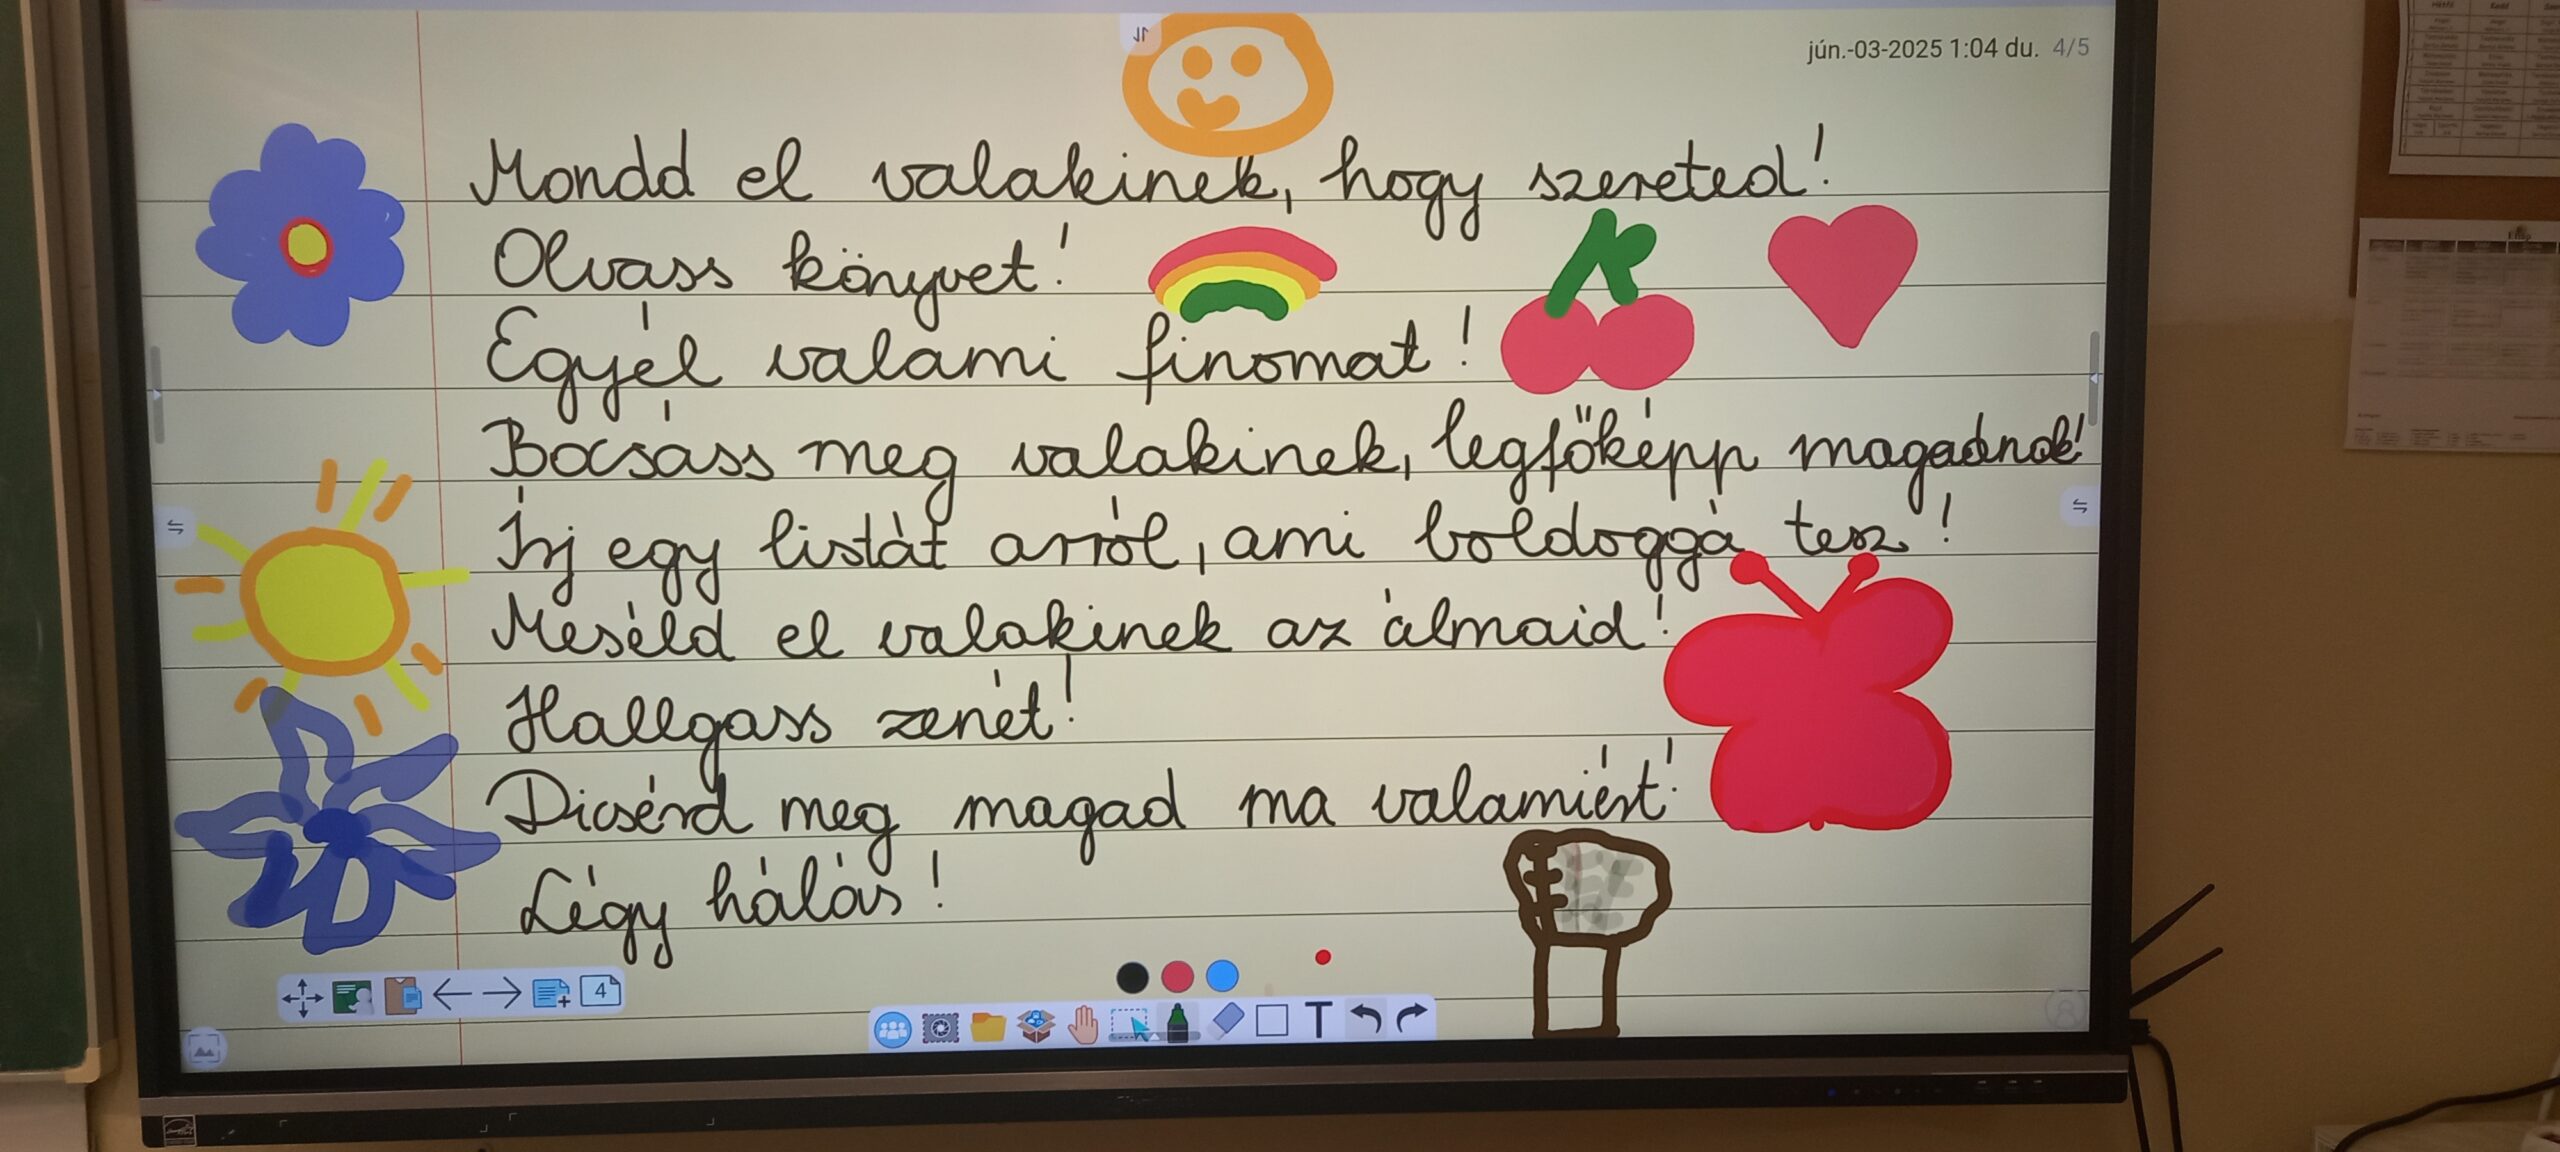 jún.-03-2025 1:04 du. 4/5
Mondd el valakinek, hogy szereted!
Olvass könyvet!
Egyél valami finomat!
Bocsáss meg valakinek, legfőképp magadnak!
Írj egy listát arról, ami boldoggá tesz!
Meséld el valakinek az álmaid!
Hallgass zenét!
Dicsérd meg magad ma valamiért!
Légy hálás!
4
T